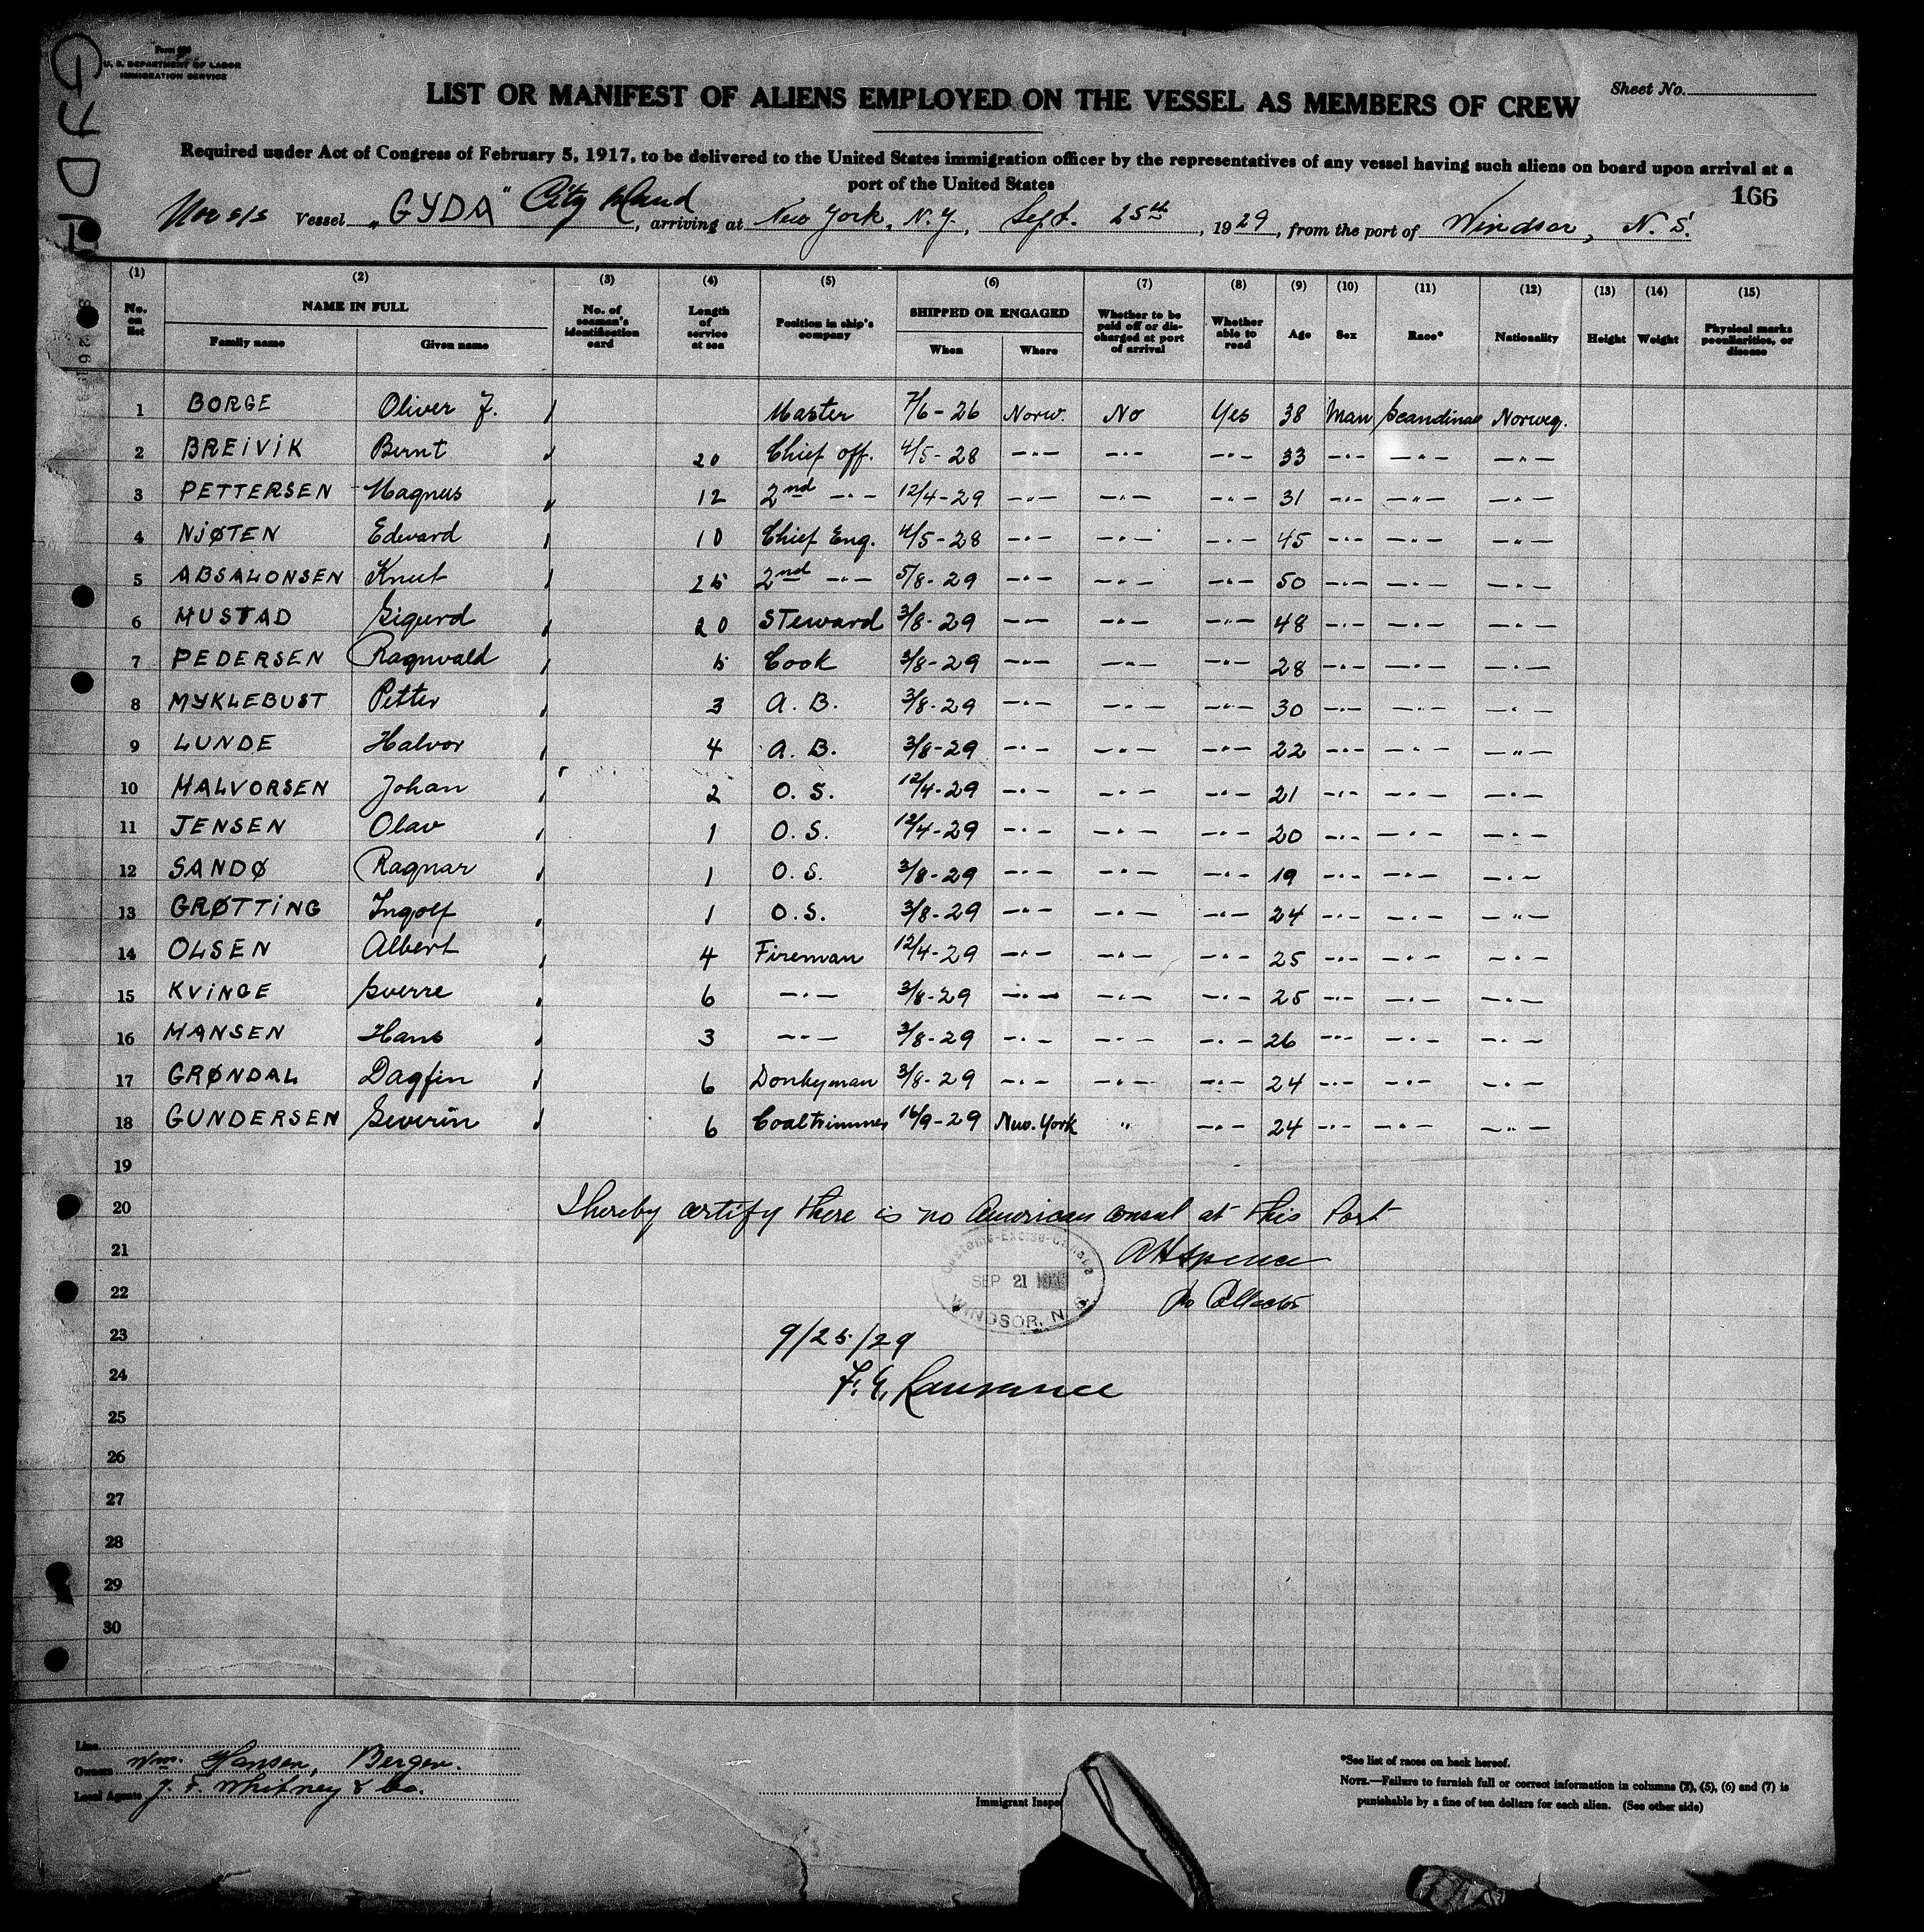 GYDA
Form 680
U. S. DEPARTMENT OF LABOR
IMMIGRATION SERVICE
Sheet No.
LIST OR MANIFEST OF ALIENS EMPLOYED ON THE VESSEL AS MEMBERS OF CREW
Required under Act of Congress of February 5, 1917, to be delivered to the United States immigration officer by the representatives of any vessel having such aliens on board upon arrival at a
port of the United States
166
Nor s/s Vessel "GYDA" City Island, arriving at New York, N.Y., Sept. 25th, 1929, from the port of Windsor, N. S.
(1) (2) (3) (4) (5) (6) (7) (8) (9) (10) (11) (12) (13) (14) (15)
No. on list NAME IN FULL Family name Given name No. of seaman's identification card Length of service at sea Position in ship's company SHIPPED OR ENGAGED When Where Whether to be paid off or discharged at port of arrival Whether able to read Age Sex Race* Nationality Height Weight Physical marks peculiarities, or disease
1 BORGE Oliver J. Master 7/6-26 Norw. No Yes 38 Man Scandinav Norweg.
2 BREIVIK Bernt 20 Chief off. 4/5-28 -"- -"- -"- 33 -"- -"- -"-
3 PETTERSEN Magnus 12 2nd -"- 12/4-29 -"- -"- -"- 31 -"- -"- -"-
4 NJØTEN Edward 10 Chief Eng. 4/5-28 -"- -"- -"- 45 -"- -"- -"-
5 ABSALONSEN Knut 25 2nd -"- 5/8-29 -"- -"- -"- 50 -"- -"- -"-
6 MUSTAD Sigurd 20 Steward 3/8-29 -"- -"- -"- 48 -"- -"- -"-
7 PEDERSEN Ragnvald 5 Cook 3/8-29 -"- -"- -"- 28 -"- -"- -"-
8 MYKLEBUST Petter 3 A. B. 3/8-29 -"- -"- -"- 30 -"- -"- -"-
9 LUNDE Halvor 4 A. B. 3/8-29 -"- -"- -"- 22 -"- -"- -"-
10 HALVORSEN Johan 2 O. S. 12/4-29 -"- -"- -"- 21 -"- -"- -"-
11 JENSEN Olav 1 O. S. 12/4-29 -"- -"- -"- 20 -"- -"- -"-
12 SANDØ Ragnar 1 O. S. 3/8-29 -"- -"- -"- 19 -"- -"- -"-
13 GRØTTING Ingolf 1 O. S. 3/8-29 -"- -"- -"- 24 -"- -"- -"-
14 OLSEN Albert 4 Fireman 12/4-29 -"- -"- -"- 25 -"- -"- -"-
15 KVINGE Sverre 6 -"- 3/8-29 -"- -"- -"- 25 -"- -"- -"-
16 HANSEN Hans 3 -"- 3/8-29 -"- -"- -"- 26 -"- -"- -"-
17 GRØNDAL Dagfin 6 Donkyman 3/8-29 -"- -"- -"- 24 -"- -"- -"-
18 GUNDERSEN Severin 6 Coaltrimmer 16/9-29 New-York " -"- 24 -"- -"- -"-
19
20 I hereby certify there is no American consul at this Port
21 AH Spence
22 Collector
Customs-Excise-Canada
SEP 21
WINDSOR, N. S.
23 9/25/29
24
25
26
27
28
29
30
Line
Owners Wm. Hansen, Bergen.
Local Agents J. F. Whitney & Co.
Immigrant Inspe
*See list of races on back hereof.
NOTE.—Failure to furnish full or correct information in columns (2), (5), (6) and (7) is
punishable by a fine of ten dollars for each alien. (See other side)